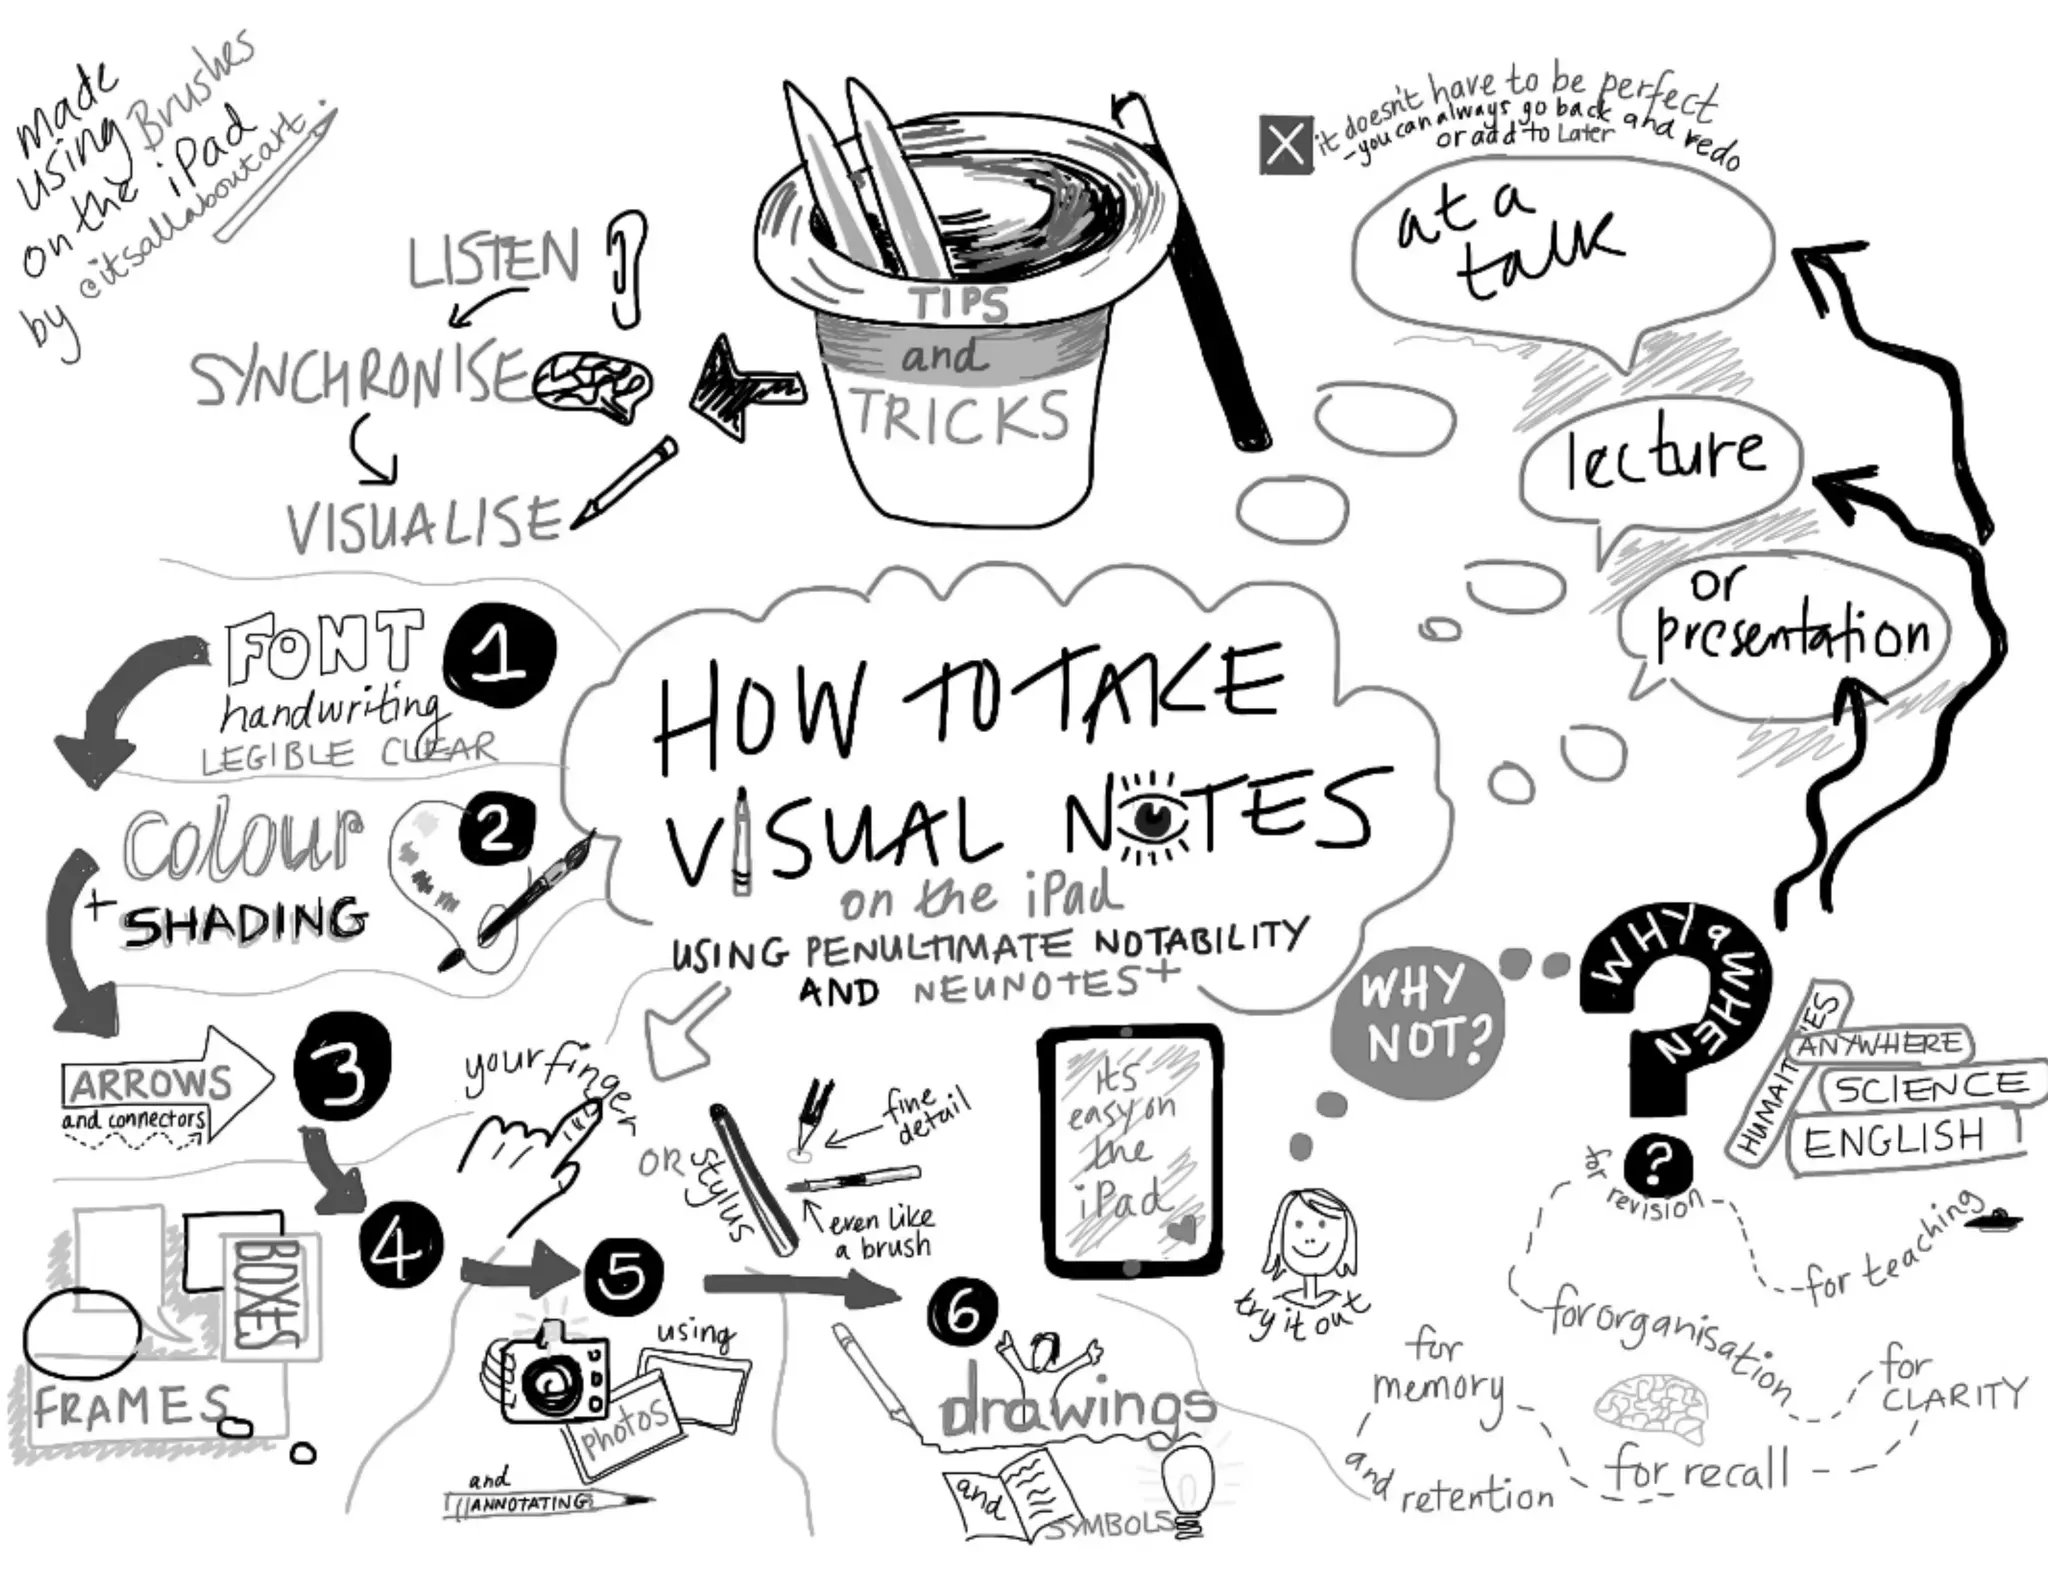 made
using Brushes
on the iPad
by @itsallaboutart.
LISTEN
SYNCHRONISE
VISUALISE
TIPS
and
TRICKS
it doesn't have to be perfect
-you can always go back and redo
or add to Later
at a
talk
lecture
or
presentation
FONT
handwriting
LEGIBLE CLEAR
1
Colour
+ SHADING
2
ARROWS
and connectors
3
BOXES
FRAMES
4
5
using
photos
and
ANNOTATING
6
drawings
and
SYMBOLS
HOW TO TAKE
VISUAL NOTES
on the iPad
USING PENULTIMATE NOTABILITY
AND NEUNOTES+
your finger
OR stylus
fine
detail
even like
a brush
its
easy on
the
iPad
WHY
NOT?
try it out
WHY & WHEN
?
HUMANITIES
ANYWHERE
SCIENCE
ENGLISH
for revision
for teaching
for organisation
for
CLARITY
for recall
for
memory
and retention